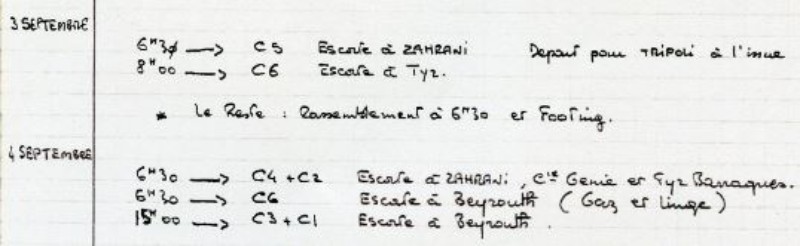 3 SEPTEMBRE
6H30 → C5 Escorte à ZAHRANI Depart pour TRIPOLI à l'issue
8H00 → C6 Escorte à Tyr.
* Le Reste : Rassemblement à 6H30 et Footing.
4 SEPTEMBRE
6H30 → C4 + C2 Escorte à ZAHRANI, Cie Genie et Tyr Baraques.
6H30 → C6 Escorte à Beyrouth (Gaz et linge)
15H00 → C3 + C1 Escorte à Beyrouth.